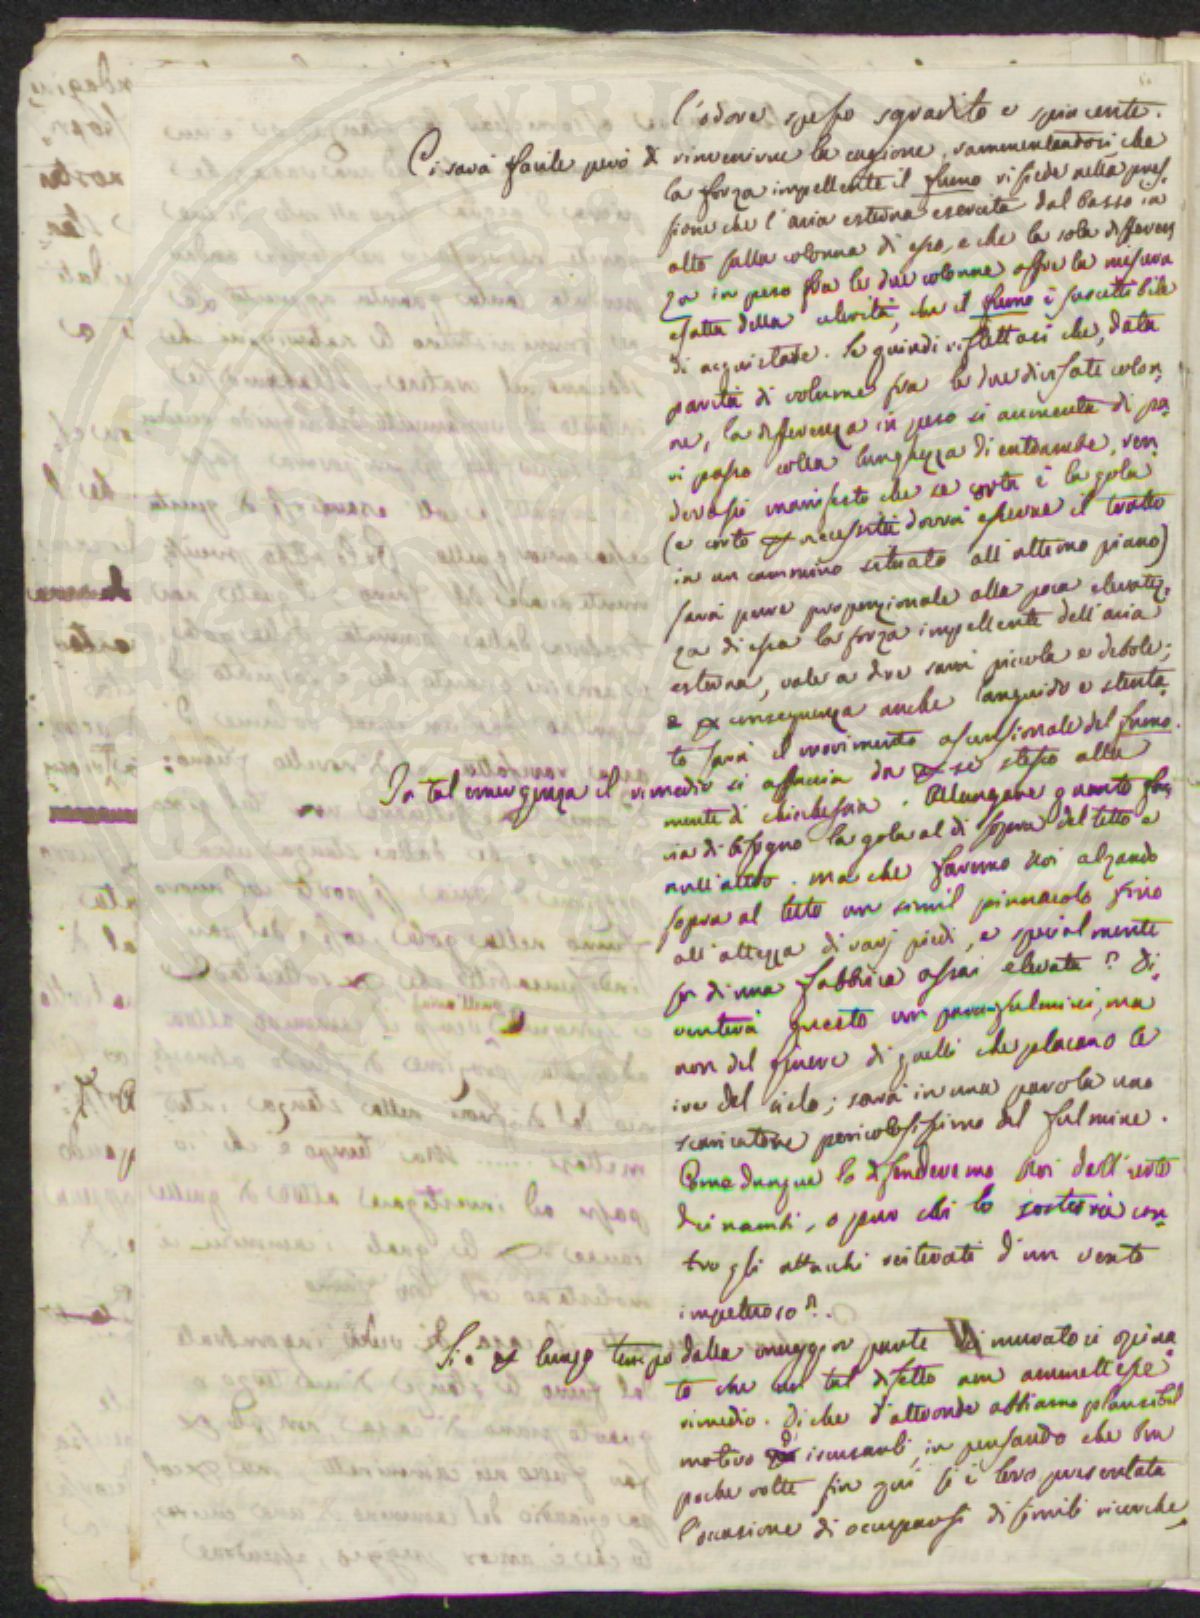 l'odore spesso sgradito e spiacente.
Ci sarà facile però di rinvenirne la cagione, rammentandosi che
la forza impellente il fumo risiede nella pres-
sione che l'aria esterna esercita dal basso in
alto sulla colonna di esso, e che la sola differen-
za in peso fra le due colonne offre la misura
esatta della celerità, che il fumo è suscettibile
di acquistare. Se quindi riflettasi che, data
parità di volume fra le due divisate colon-
ne, la differenza in peso si aumenta di pa-
ri passo colla lunghezza di entrambe, ren-
derassi manifesto che se corta è la gola
(e corto per necessità dovrà esserne il tratto
in un cammino situato all'ultimo piano)
sarà pure proporzionale alla poca elevatez-
za di essa la forza impellente dell'aria
esterna, vale a dire sarà piccola e debole;
e per conseguenza anche languido e stenta-
to sarà il movimento ascensionale del fumo.
In tal emergenza il rimedio si affaccia da per sè stesso alla
mente di chichessia. Allungare quanto fac-
cia di bisogno la gola al di sopra del tetto e
null'altro. Ma che faremo noi alzando
sopra al tetto un simil pinnacolo fino
all'altezza di varj piedi, e specialmente
su di una fabbrica assai elevata? Di-
venterà questo un parafulmini, ma
non del genere di quelli che placano le
ire del cielo; sarà in una parola uno
scaricatore pericolosissimo del fulmine.
Come dunque lo difenderemo noi dall'urto
dei nembi, o pur chi lo sosterrà con-
tro gli attacchi reiterati d'un vento
impetuoso?
Si è per lungo tempo dalla maggior parte dei muratori opina-
to che un tal difetto non ammettesse
rimedio. Di che d'altronde abbiamo plausibil
motivo di iscusarli, in pensando che ben
poche volte fin qui si è loro presentata
l'occasione di occuparsi di simili ricerche,